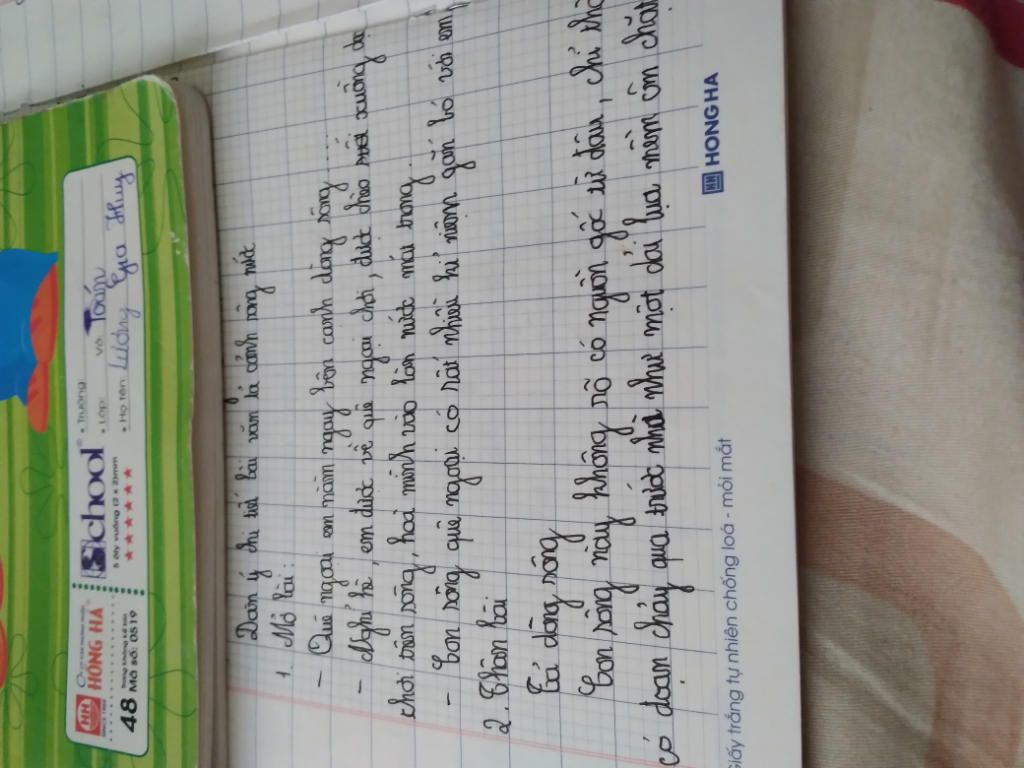 HỒNG HÀ
48 Trang không kể bìa
Mã số: 0519
School
5 ôly vuông (2 x 2)mm
Trường
Lớp: Vở: Toán
Họ tên: Lương Gia Huy
Dàn ý chi tiết bài văn tả cảnh sông nước
1. Mở bài:
- Quê ngoại em nằm ngay bên cạnh dòng sông
- Nghỉ hè, em được về quê ngoại chơi, được chèo xuồng
chơi trên sông, hoà mình vào làn nước mát trong.
- Con sông quê ngoại có rất nhiều kỉ niệm gắn bó với em
2. Thân bài
Tả dòng sông
Con sông này không rõ có nguồn gốc từ đâu, chỉ
có đoạn chảy qua trước nhà như một dải lụa mềm ôm
HONG HA
Giấy trắng tự nhiên chống loá - mỏi mắt